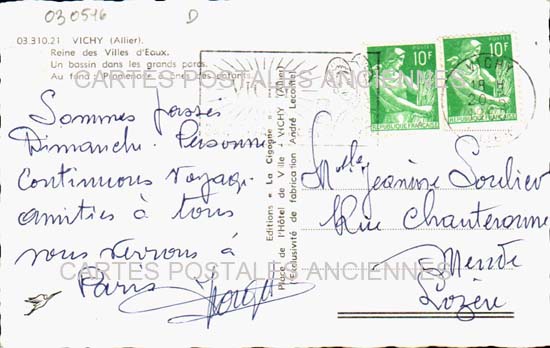 030516 D
03.310.21 VICHY (Allier).
Reine des Villes d'Eaux.
Un bassin dans les grands parcs.
Au fond : Promenade des enfants.
CARTES POSTALES ANCIENNES
Sommes passés
Dimanche. Personne
Continuons voyage
amitiés à tous
vous verrons à
Paris
Editions « La Cigogne »
Place de l'Hôtel de Ville - VICHY (Allier)
Exclusivité de fabrication André Leconte
POSTES
10F
REPUBLIQUE FRANÇAISE
POSTES
10F
REPUBLIQUE FRANÇAISE
VICHY
Mlle Jeanine Soulier
Rue Chanteronne
Mende
Lozère
CARTES POSTALES ANCIENNES